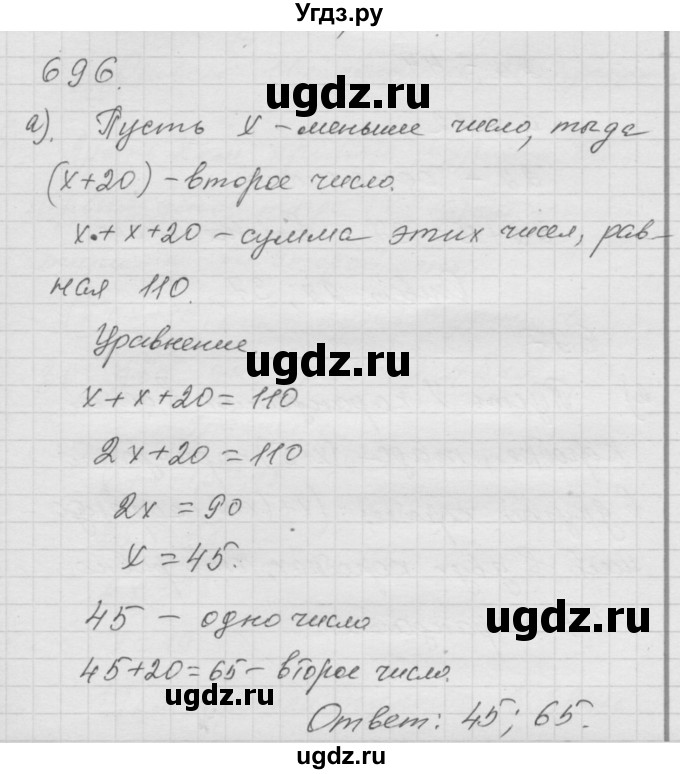 Угдз.ру
696.
ugdz.ru
а). Пусть x - меньшее число, тогда
(x+20) - второе число.
x + x+20 - сумма этих чисел, рав-
ugdz.ru
ная 110.
Уравнение
ugdz.ru
x + x+20 = 110
2x+20 = 110
2x = 90
x = 45.
45 - одно число
ugdz.ru
45+20=65 - второе число.
ugdz.ru
Ответ: 45; 65.
ugdz.ru